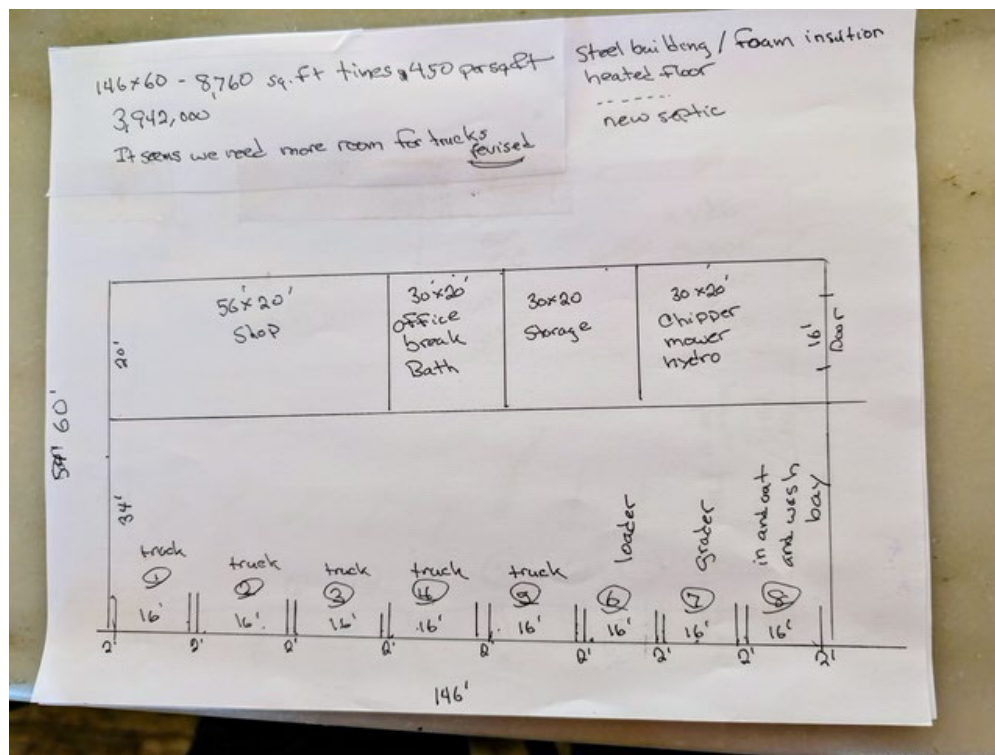 146x60 - 8,760 sq.ft times 450 per sqft
3,942,000
It seems we need more room for trucks
revised
Steel building / foam insution
heated floor
new septic
56'x20'
Shop
30'x20'
office
break
Bath
30x20
Storage
30x20'
Chipper
mower
hydro
16'
Door
20'
60'
34'
truck
1
16'
truck
2
16'
truck
3
16'
truck
4
16'
truck
16'
loader
6
16'
grader
7
16'
in and out
and wash
bay
16'
2'
2'
2'
2'
2'
2'
2'
2'
2'
146'